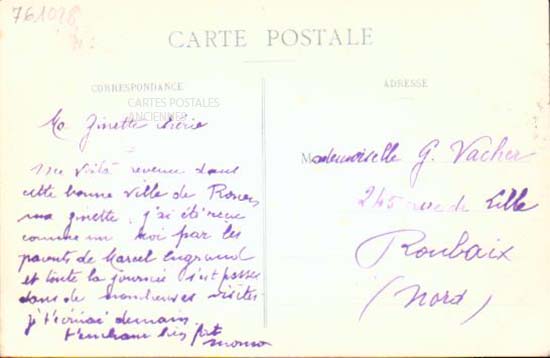 761098
CARTE POSTALE
CORRESPONDANCE
CARTES POSTALES
ANCIENNES
Ma Ginette chérie
Me voilà revenu dans
cette bonne ville de Rouen
ma ginette, j'ai été reçu
comme un roi par les
parents de Marcel
et toute la journée s'est passée
dans de nombreuses visites
je t'écrirai demain
t'embrasse bien fort
ADRESSE
Mademoiselle G. Vacher
245 rue de Lille
Roubaix
(Nord)